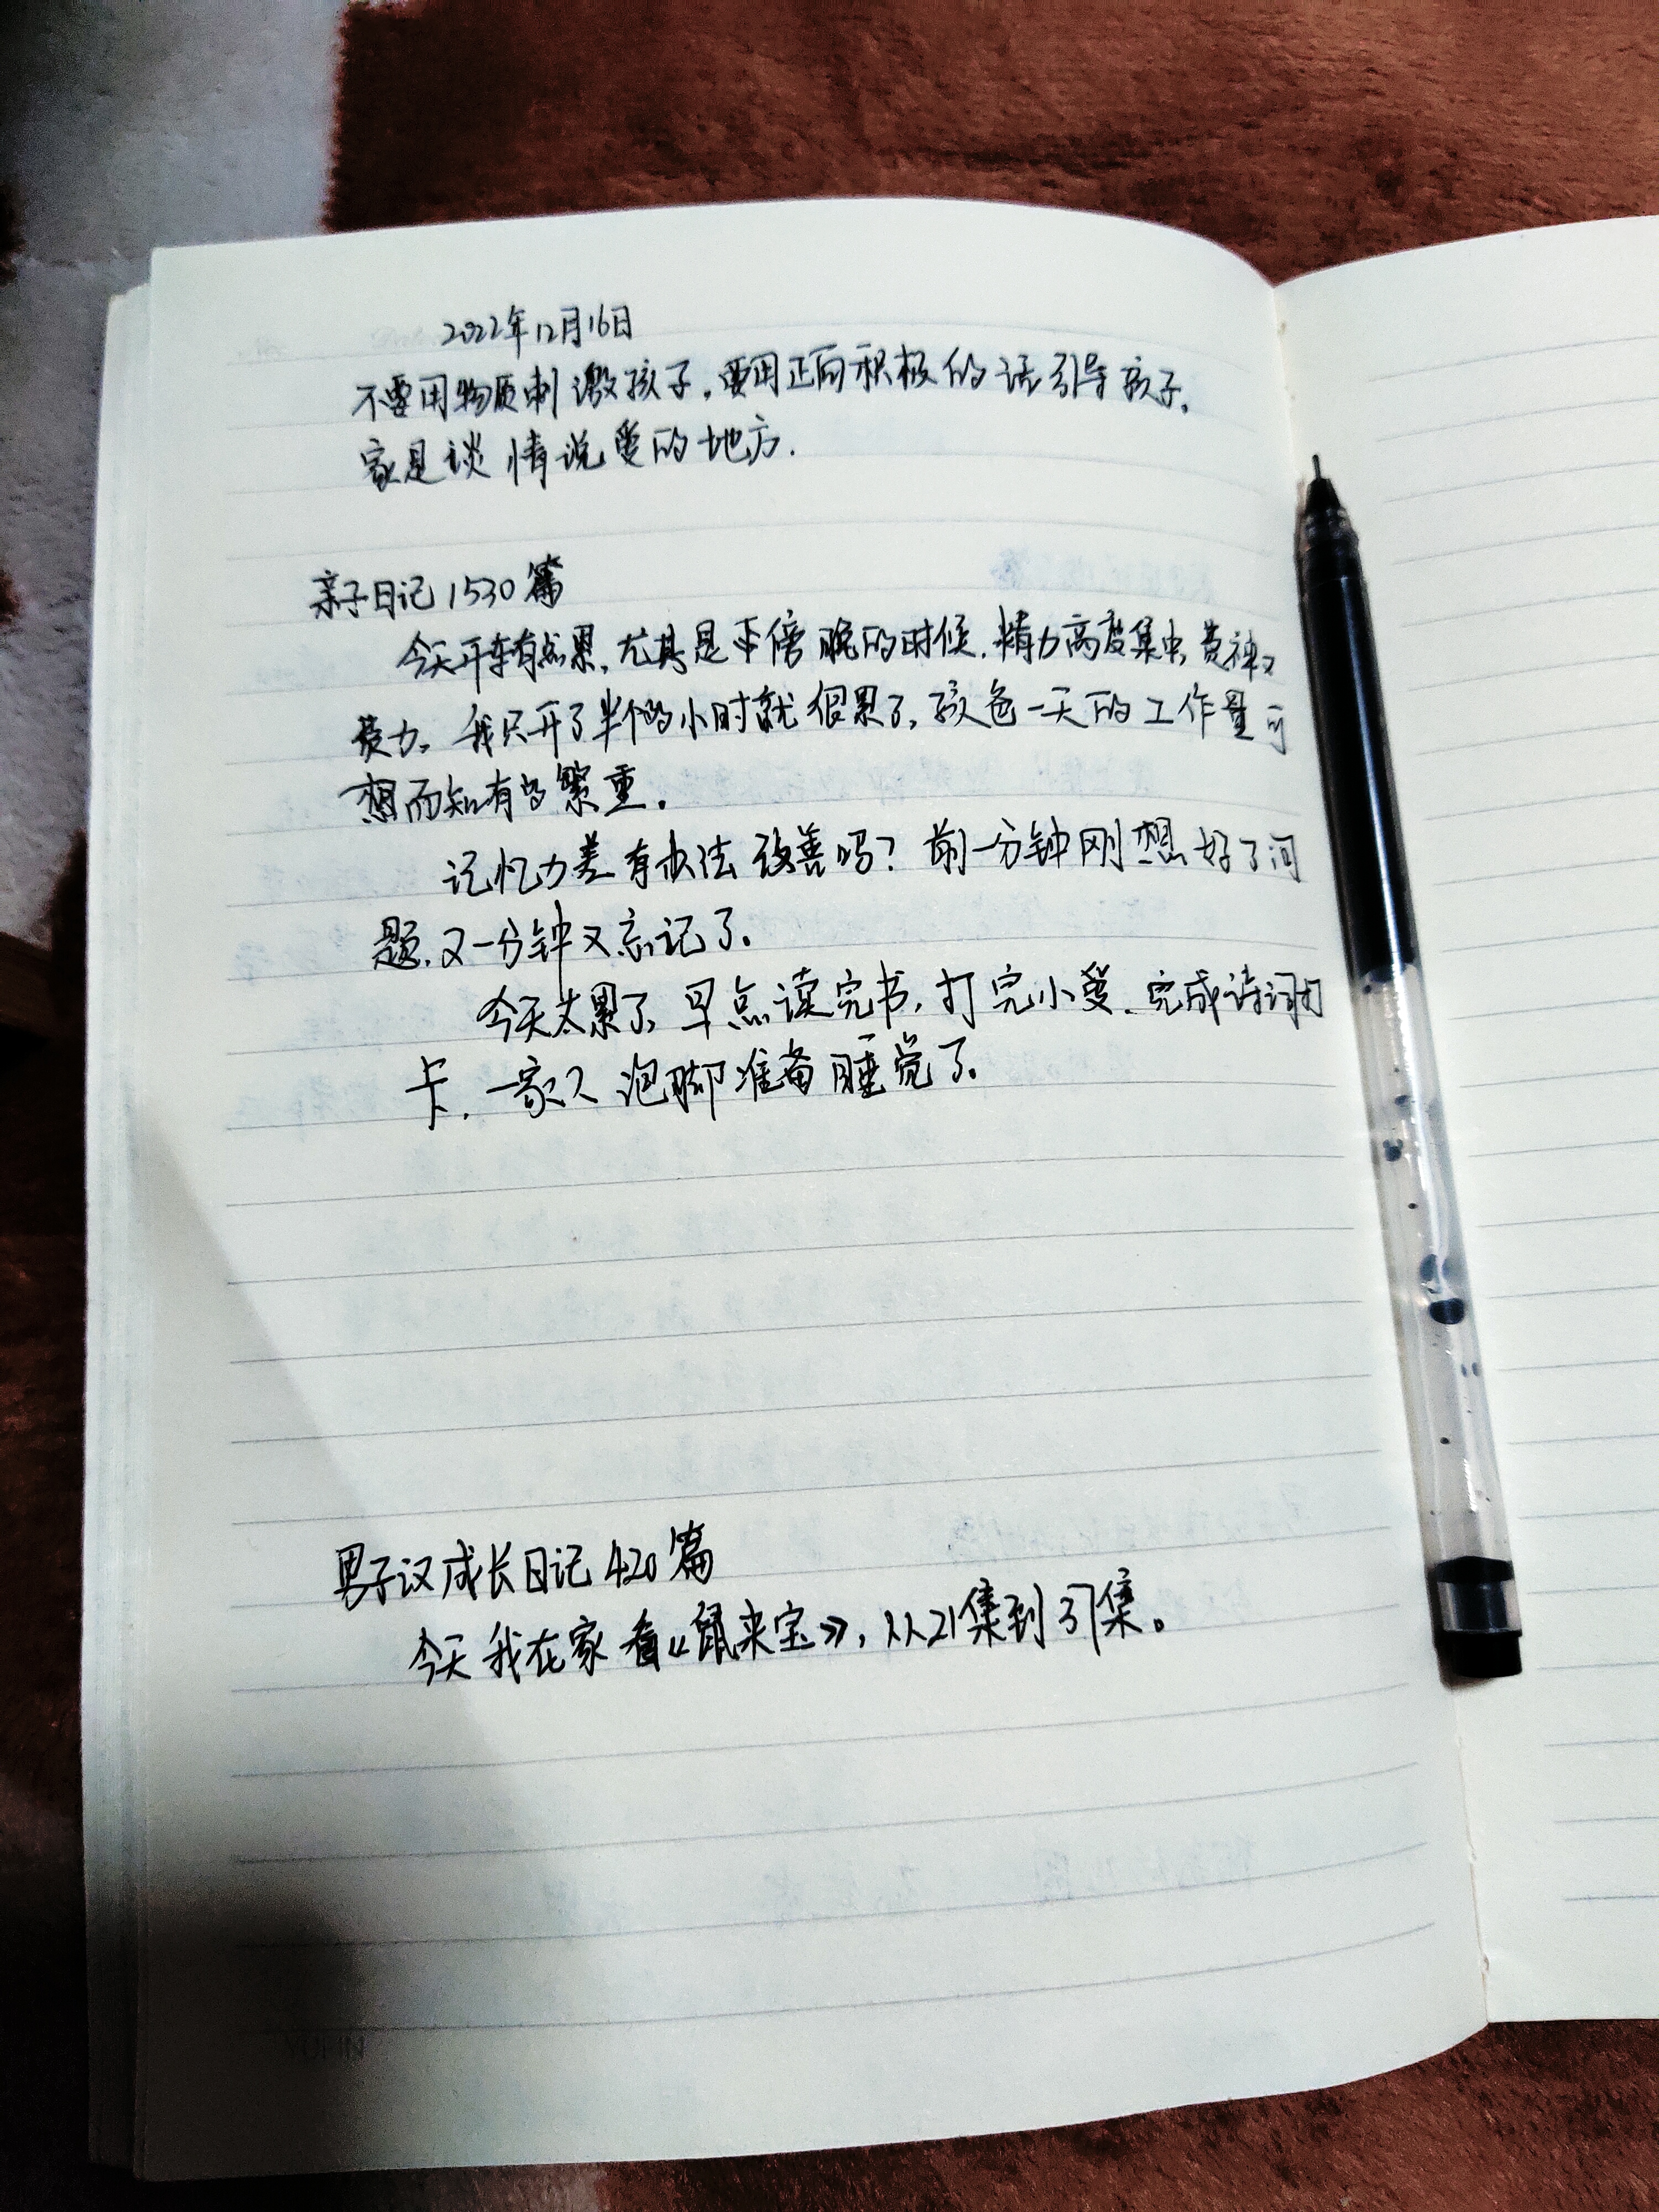 2022年12月16日
不要用物质刺激孩子，要用正向积极的话引导孩子。
家是谈情说爱的地方.
亲子日记1530篇
今天开车有点累，尤其是下傍晚的时候，精力高度集中，费神又
费力。我只开了半个的小时就很累了，孩爸一天的工作量可
想而知有多繁重。
记忆力差有办法改善吗？前一分钟刚想好了问
题，又一分钟又忘记了。
今天太累了，早点读完书，打完小爱、完成诗词打
卡，一家人泡脚准备睡觉了。
男子汉成长日记420篇
今天我在家看《鼠来宝》，从21集到37集。